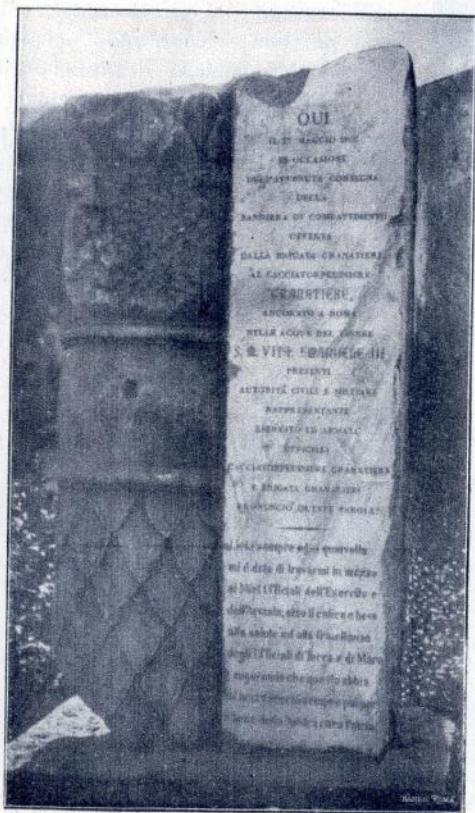 QUI
IL 27 MAGGIO
IN OCCASIONE
DELL'AVVENUTA CONSEGNA
DELLA
BANDIERA DI COMBATTIMENTO
OFFERTA
DALLA BRIGATA GRANATIERI
AL CACCIATORPEDINIERE
"GRANATIERE"
ANCORATO A ROMA
NELLE ACQUE DEL TEVERE
S. M. VITT. EMANUELE III
PRESENTI
AUTORITÀ CIVILI E MILITARI
RAPPRESENTANTI
ESERCITO ED ARMATA
UFFICIALI
CACCIATORPEDINIERE GRANATIERE
E BRIGATA GRANATIERI
PRONUNCIÒ QUESTE PAROLE:
sempre ogni qualvolta
mi è dato di trovarmi in mezzo
ai Miei Ufficiali dell'Esercito e
dell'Armata, alzo il calice e bevo
alla salute ed alla fratellanza
degli Ufficiali di Terra e di Mare
augurando che questo abbia
sempre
della nostra cara Patria
ROMA